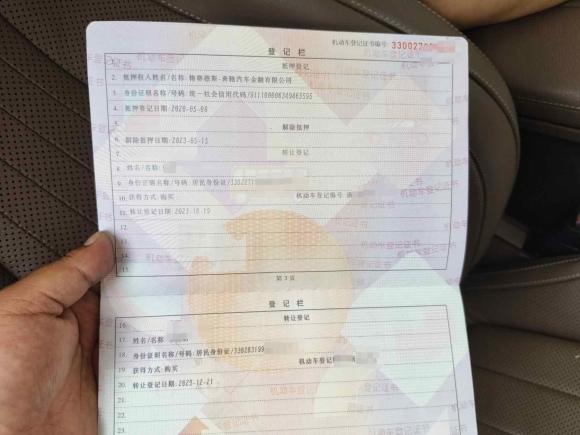 机动车登记证书编号: 33002700
登记栏
1. 抵押登记
2. 抵押权人姓名/名称: 梅赛德斯-奔驰汽车金融有限公司
3. 身份证明名称/号码: 统一社会信用代码/
4. 抵押登记日期:2020-05-08
5.
6. 解除抵押
7. 解除抵押日期:2023-05-15
8. 转让登记
姓名/名称:
9. 身份证明名称/号码: 居民身份证/
10. 获得方式: 购买 机动车登记编号: 浙
11. 转让登记日期:2023-10-19
12.
13.
14.
15.
第3页
登记栏
16. 转让登记
17. 姓名/名称:
18. 身份证明名称/号码: 居民身份证/330283199
19. 获得方式: 购买 机动车登记编号
20. 转让登记日期:2023-12-21
21.
22.
23.